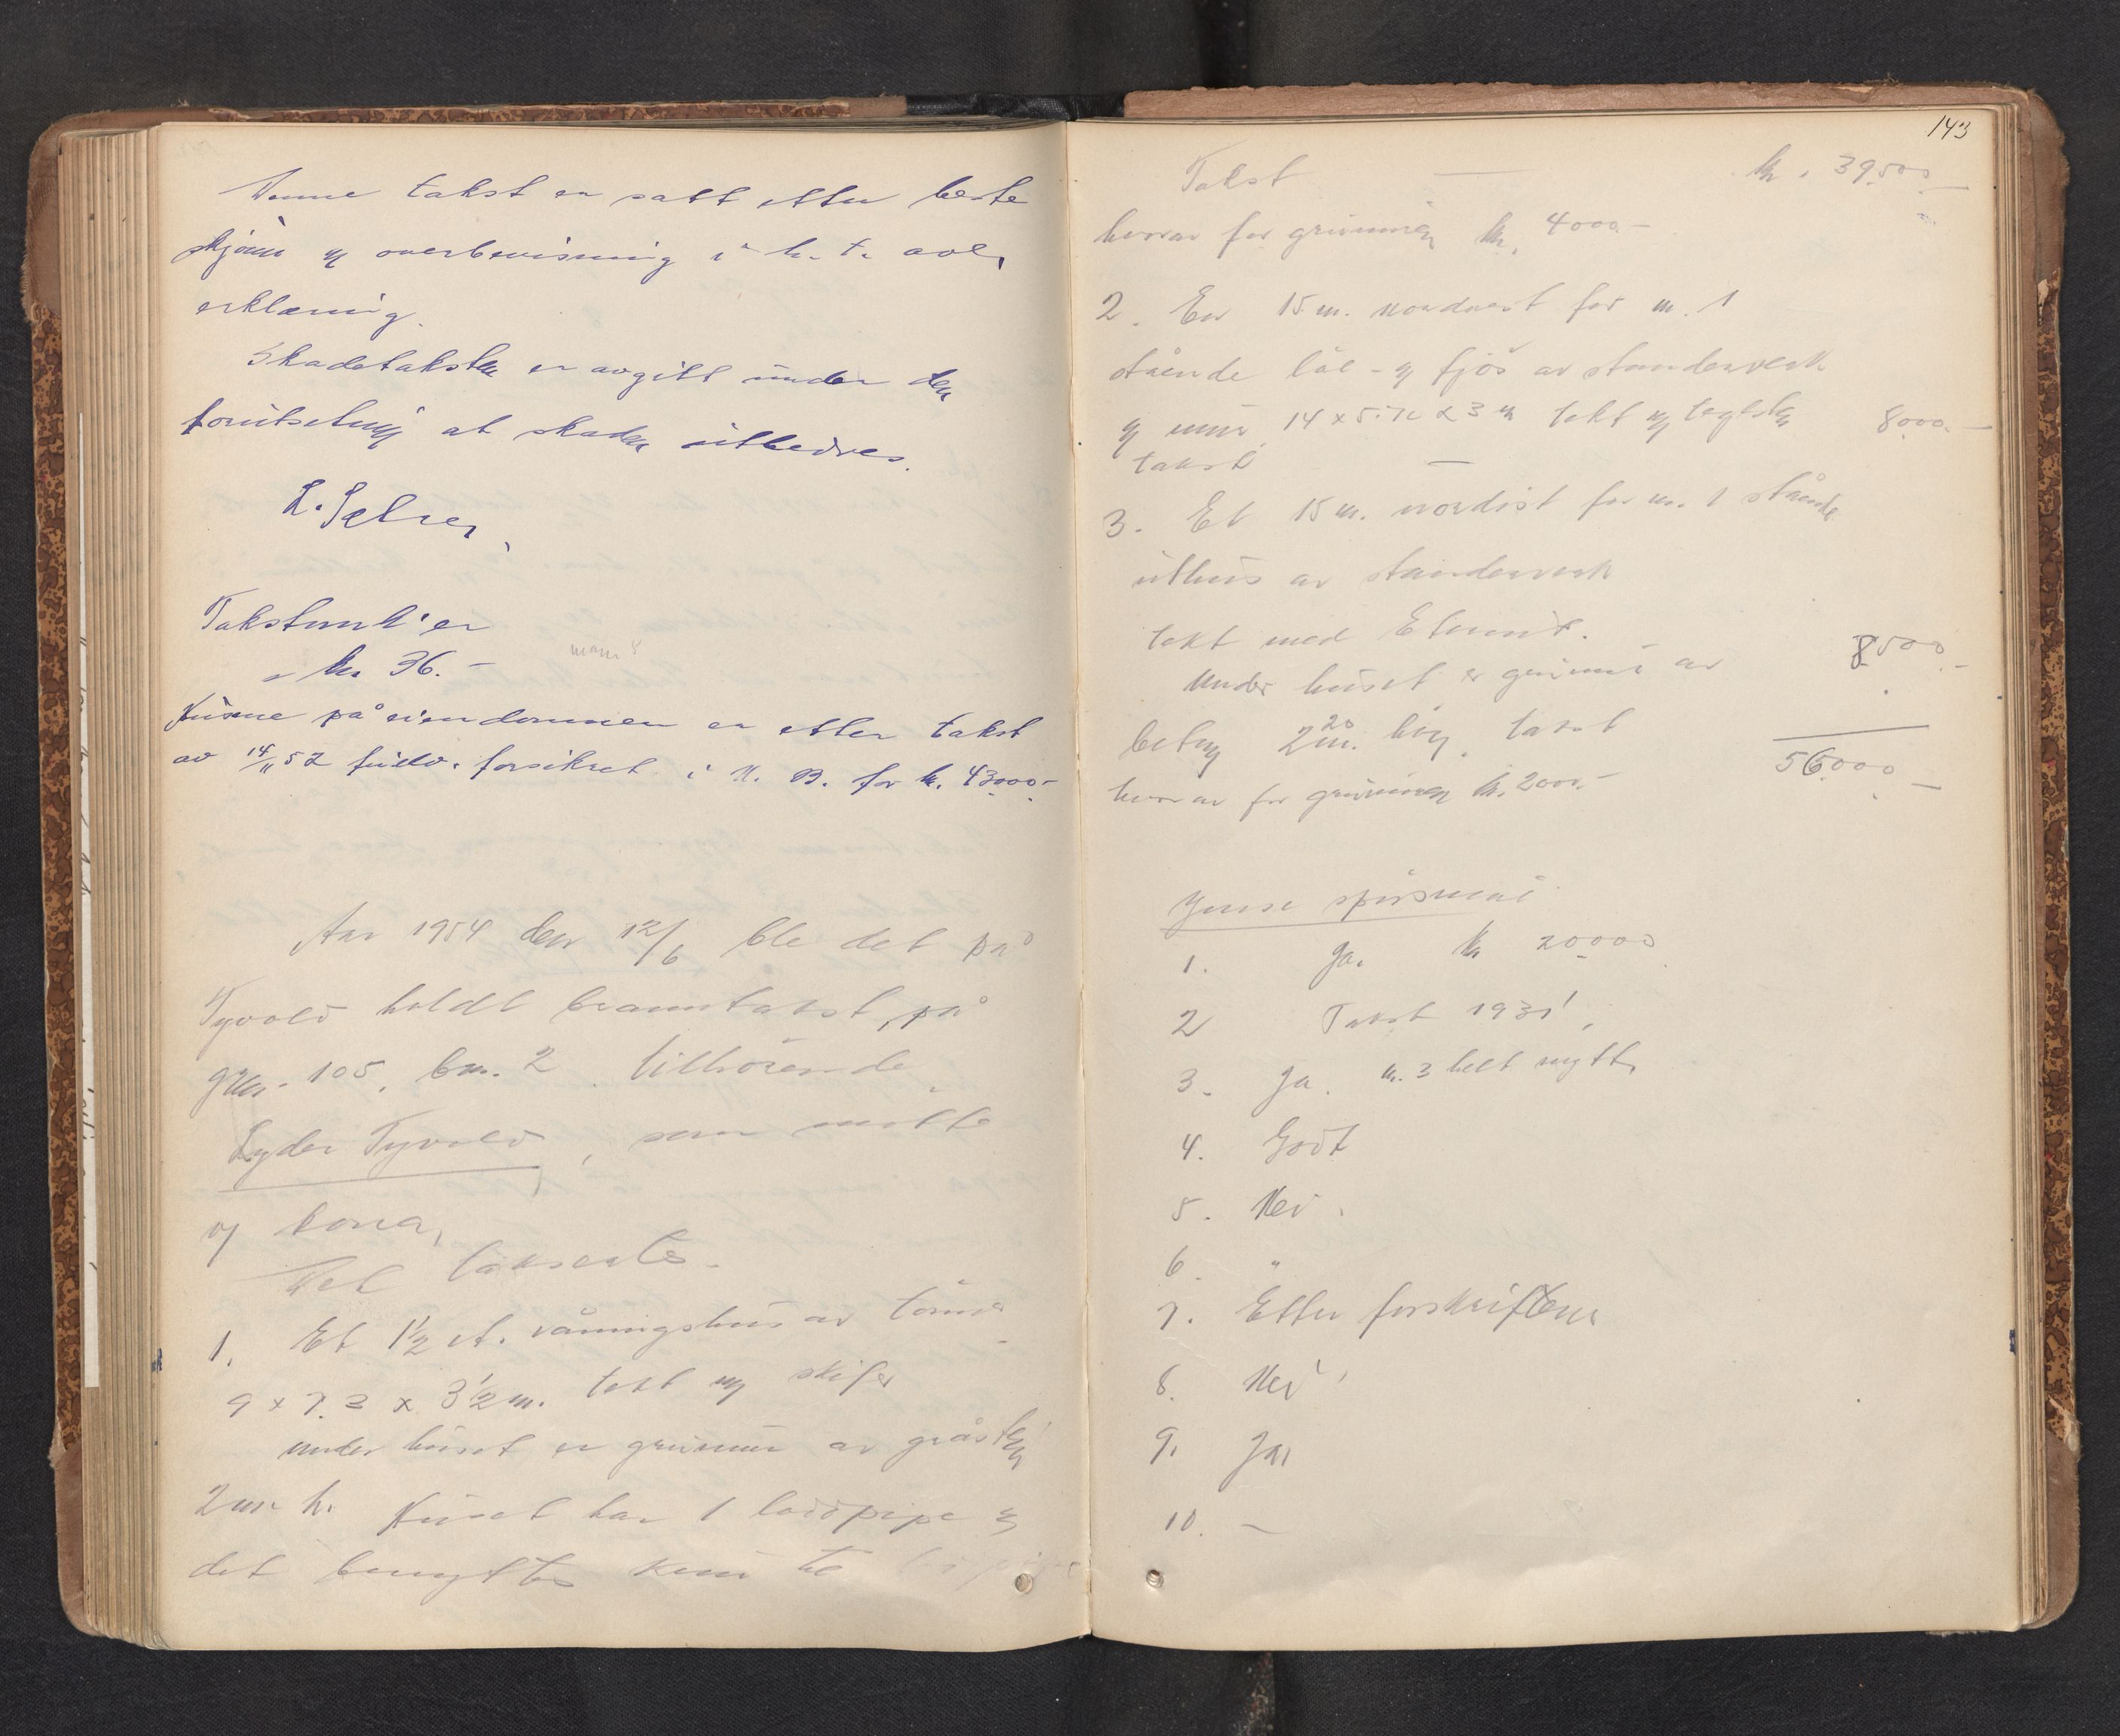 Denne takst er satt etter beste
skjønn og overbevisning i h. t. avl.
erklæring.
Skadetaksten er avgitt under den
forutsetning at skaden utbedres.
L. Sælner
Takstunk. er
kr. 36.-
Husene på eiendommen er etter takst
av 14/11 52 fullv. forsikret i N. B. for kr. 43000.-
Aar 1954 den 12/6 ble det på
Tyvold holdt branntakst, på
gnr. 105, bnr. 2 tilhørende
Lyder Tyvold, som møtte
og kona,
Det takserte.
1. Et 1½ et. våningshus av tømmer
9 x 7.3 x 3½ m. tekt m/ skifer
under huset er grunmur av gråsten
2 m h. Huset har 1 loddpipe og
det benyttes kun til
143
Takst — kr. 39500.-
hvorav for grunmuren kr. 4000.-
2. En 15 m. nordvest for nr. 1
stående løe- og fjøs av stenderverk
og mur. 14 x 5.70 x 3 m tekt m/ teglsten
takst — 8000.-
3. Et 15 m. nordøst for nr. 1 stående
uthus av stenderverk
tekt med Eternit.
Under huset er grunmur av
betong 2.20 m. høy. takst 8500.-
hvorav for grunmuren kr. 2000.-
56000.-
Ymse spørsmål
1. Ja. kr 20000
2 Takst 1931,
3. Ja. nr. 3 helt nytt,
4. Godt
5. Nei.
6. "
7. Etter forskriftene
8. Nei,
9. Ja,
10. —